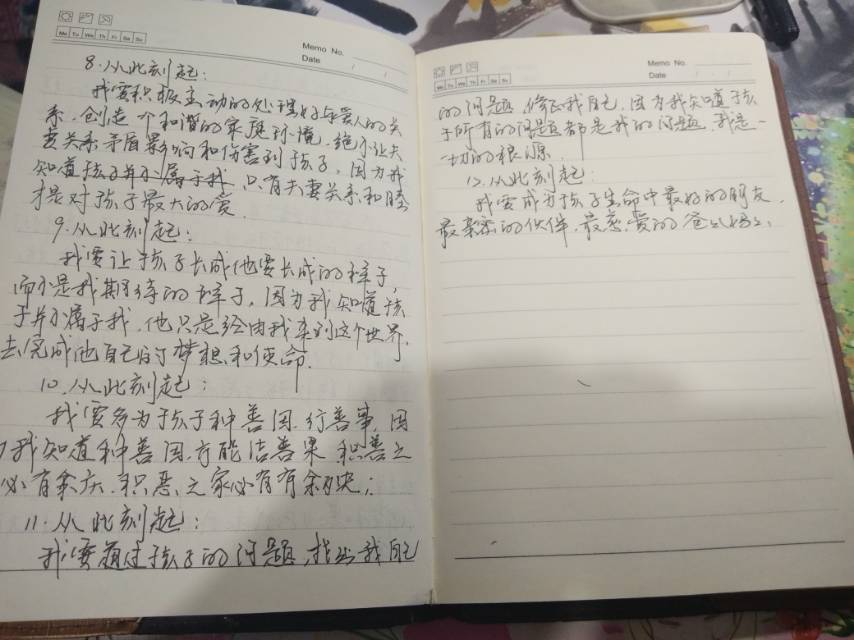 Memo No.
Date / /
Mo Tu We Th Fr Sa Su
8.从此刻起:
我要积极主动的处理好与爱人的关
系,创造一个和谐的家庭环境,绝不让夫
妻关系矛盾影响和伤害到孩子,因为我
知道孩子并不属于我,只有夫妻关系和睦
才是对孩子最大的爱.
9.从此刻起:
我要让孩子长成他要长成的样子,
而不是我期待的样子,因为我知道孩
子并不属于我,他只是经由我来到这个世界,
去完成他自己的梦想和使命.
10.从此刻起:
我要多为孩子种善因.行善事,因
我知道种善因,方能结善果 积善之
必有余庆.积恶之家必有有余殃;
11.从此刻起:
我要通过孩子的问题,找出我自己
Memo No.
Date / /
Mo Tu We Th Fr Sa Su
的问题,修正我自己,因为我知道孩
子所有的问题都是我的问题,我是一
切的根源.
12.从此刻起:
我要成为孩子生命中最好的朋友,
最亲密的伙伴,最慈爱的爸爸妈妈